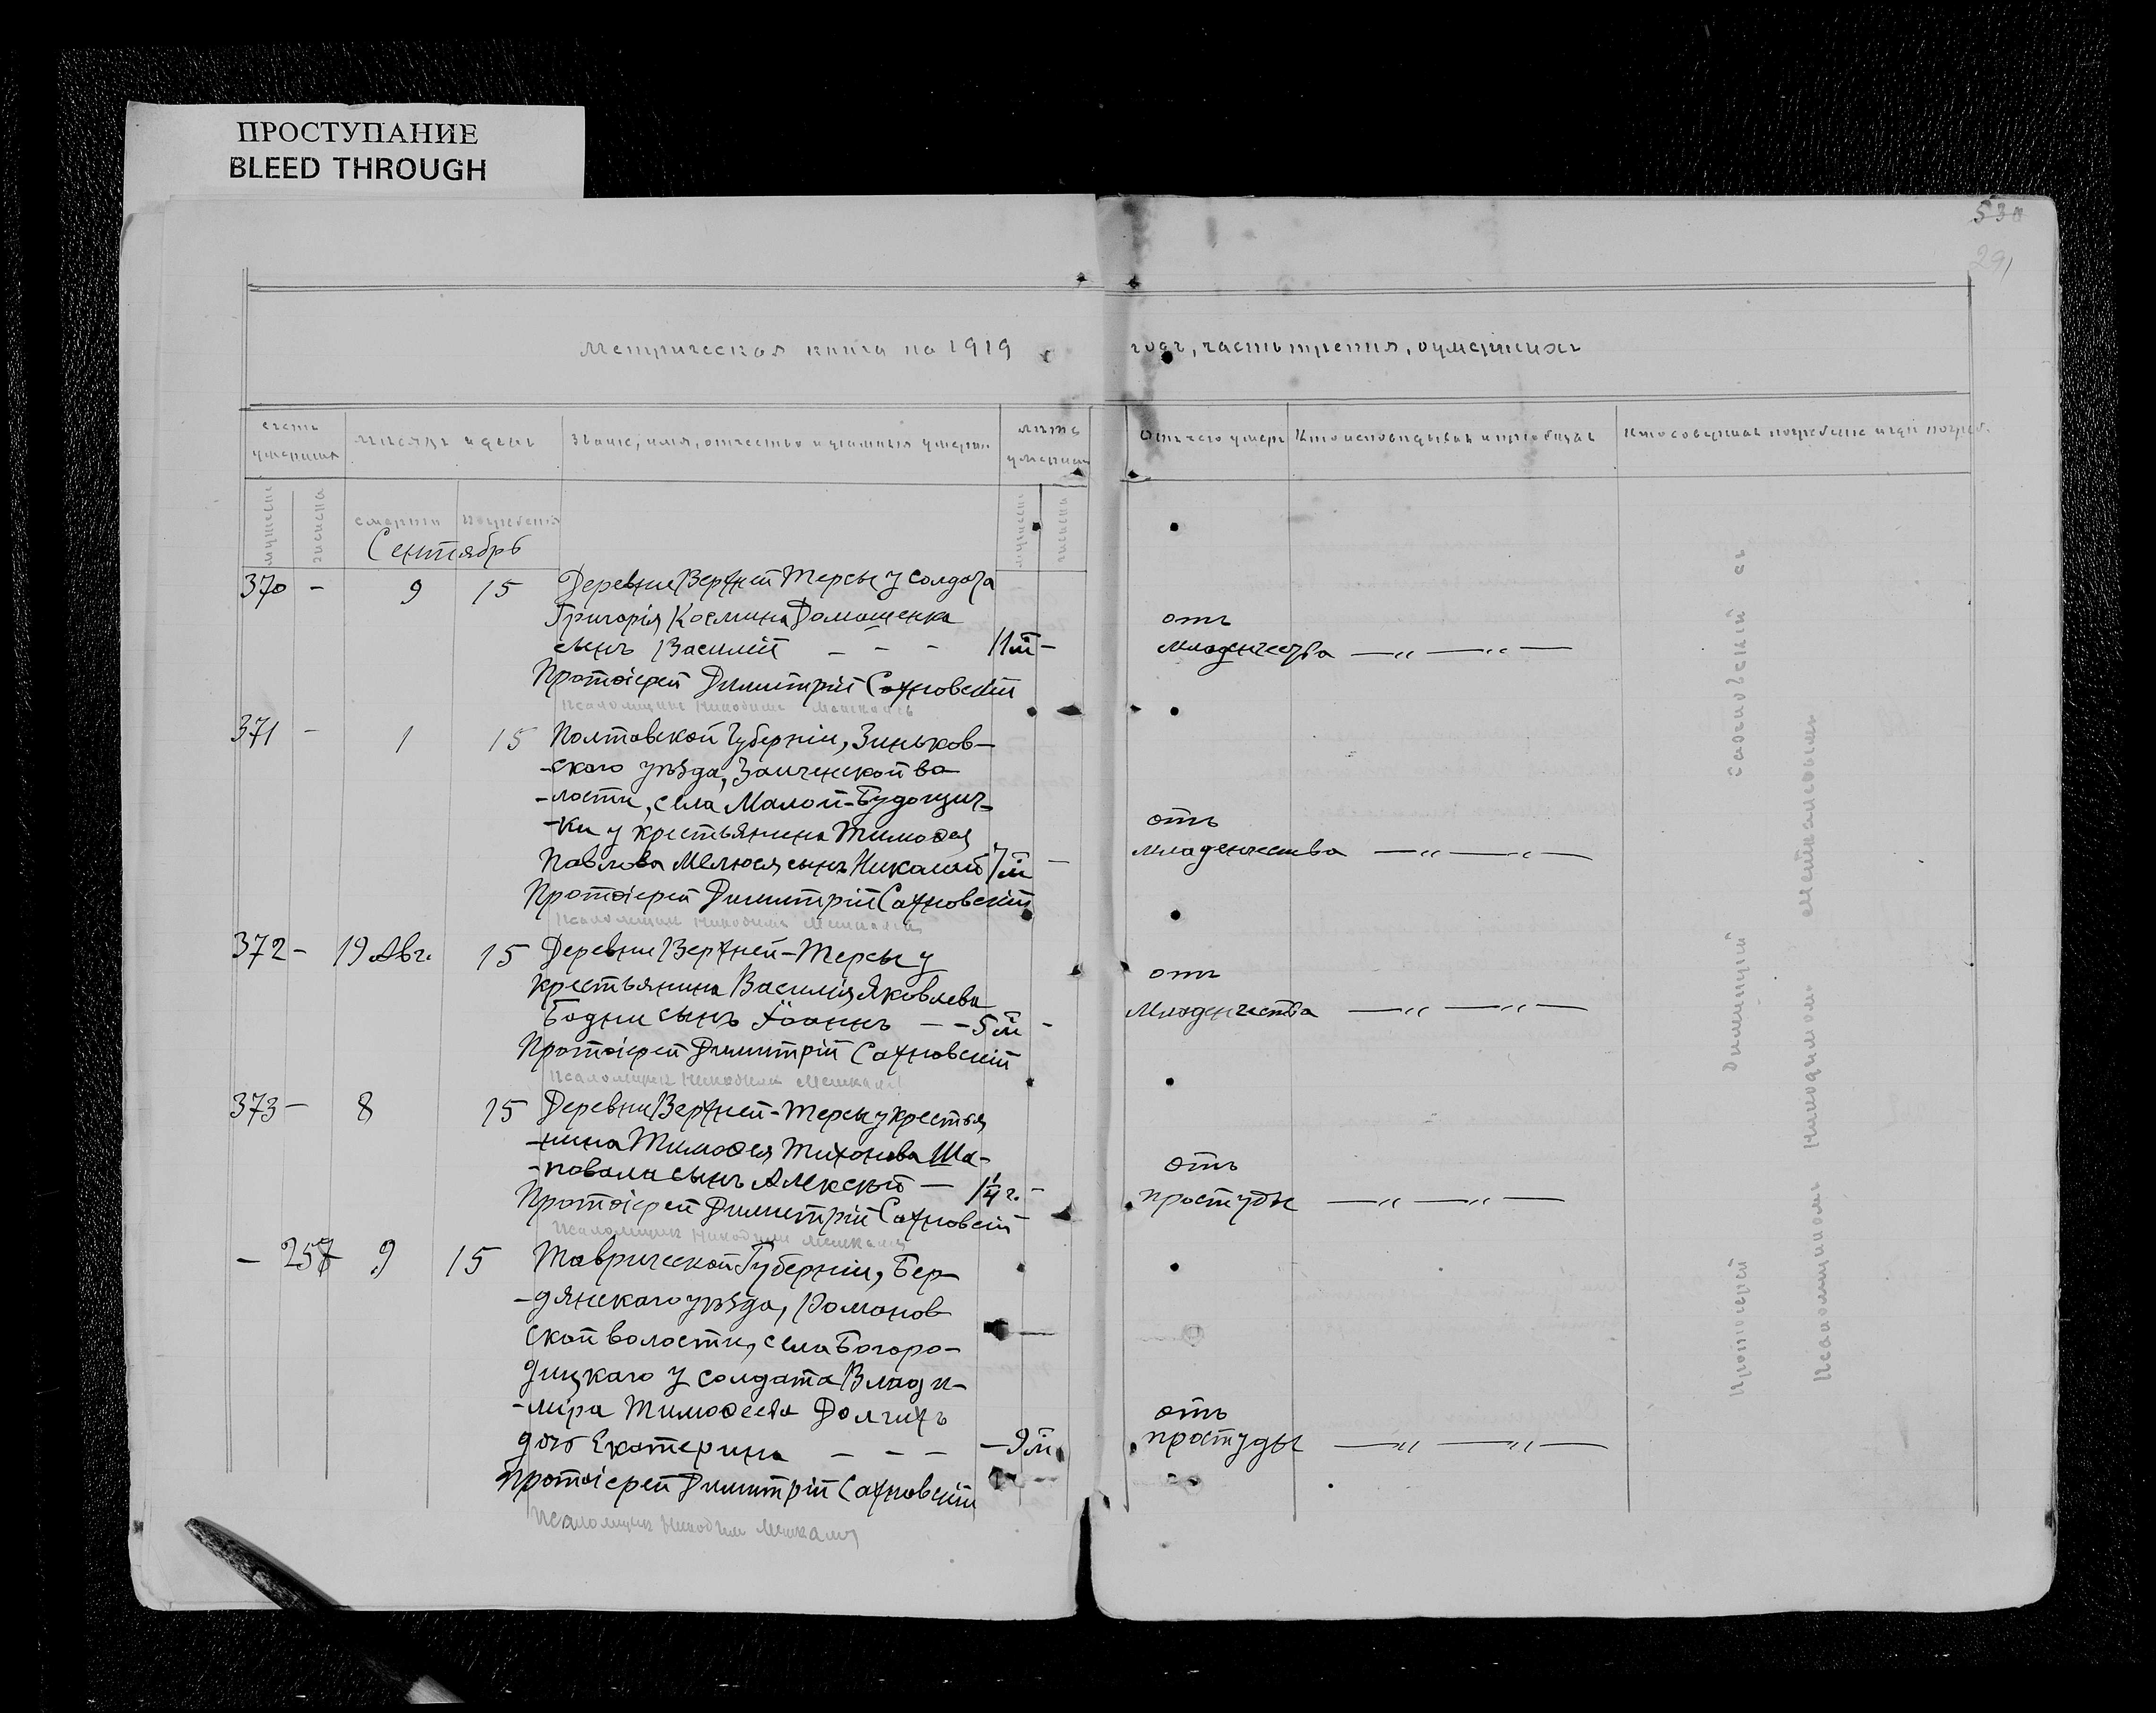 ПРОСТУПАНИЕ
BLEED THROUGH
530
29
Метрическая книга на 1919
годъ, часть третья, о умершихъ
счетъ умершихъ
мѣсяцъ и день
Званіе, имя, отчество и фамилія умерш.
лѣта умершихъ
Отъ чего умеръ
Кто исповѣдывалъ и пріобщалъ
Кто совершалъ погребеніе и гдѣ погреб.
мужеска
женска
смерти
погребенія
мужеска
женска
Сентябрь
370 - 9 15 Деревни Верхней Терсы у солдата
Григорія Космина Домашенка
сынъ Василій - - - 11 м -
отъ
младенчества —„ —„ —
Протоіерей Димитрій Сахновскій
Псаломщикъ Никодимъ
371 - 1 15 Полтавской Губерніи, Зиньков-
-скаго уѣзда, во-
-лости, села Малой-Будо
-ки у крестьянина Тимоѳея
Павлова сынъ Николай 7 м -
отъ
младенчества —„ —„ —
Протоіерей Димитрій Сахновскій
Псаломщикъ Никодимъ
372 - 19 Авг. 15 Деревни Верхней-Терсы у
крестьянина Василія Яковлева
Бодни сынъ Іоаннъ - - 5 м -
отъ
Младенчества —„ —„ —
Протоіерей Димитрій Сахновскій
Псаломщикъ Никодимъ
373 - 8 15 Деревни Верхней-Терсы у крестья
-нина Тимоѳея Тихонова Ша-
-повала сынъ Алексѣй — 1¼ г. -
отъ
простуды —„ —„ —
Протоіерей Димитрій Сахновскій
Псаломщикъ Никодимъ
- 257 9 15 Таврической Губерніи, Бер-
-дянскаго уѣзда, Романов
ской волости, села Богоро-
дицкаго у солдата Влади-
-мира Тимоѳеева Долгихъ
дочь Екатерина - - - - 9 м
отъ
простуды —„ —„ —
Протоіерей Димитрій Сахновскій
Псаломщикъ Никодимъ
Протоіерей Димитрій Сахновскій съ
Псаломщикомъ Никодимомъ